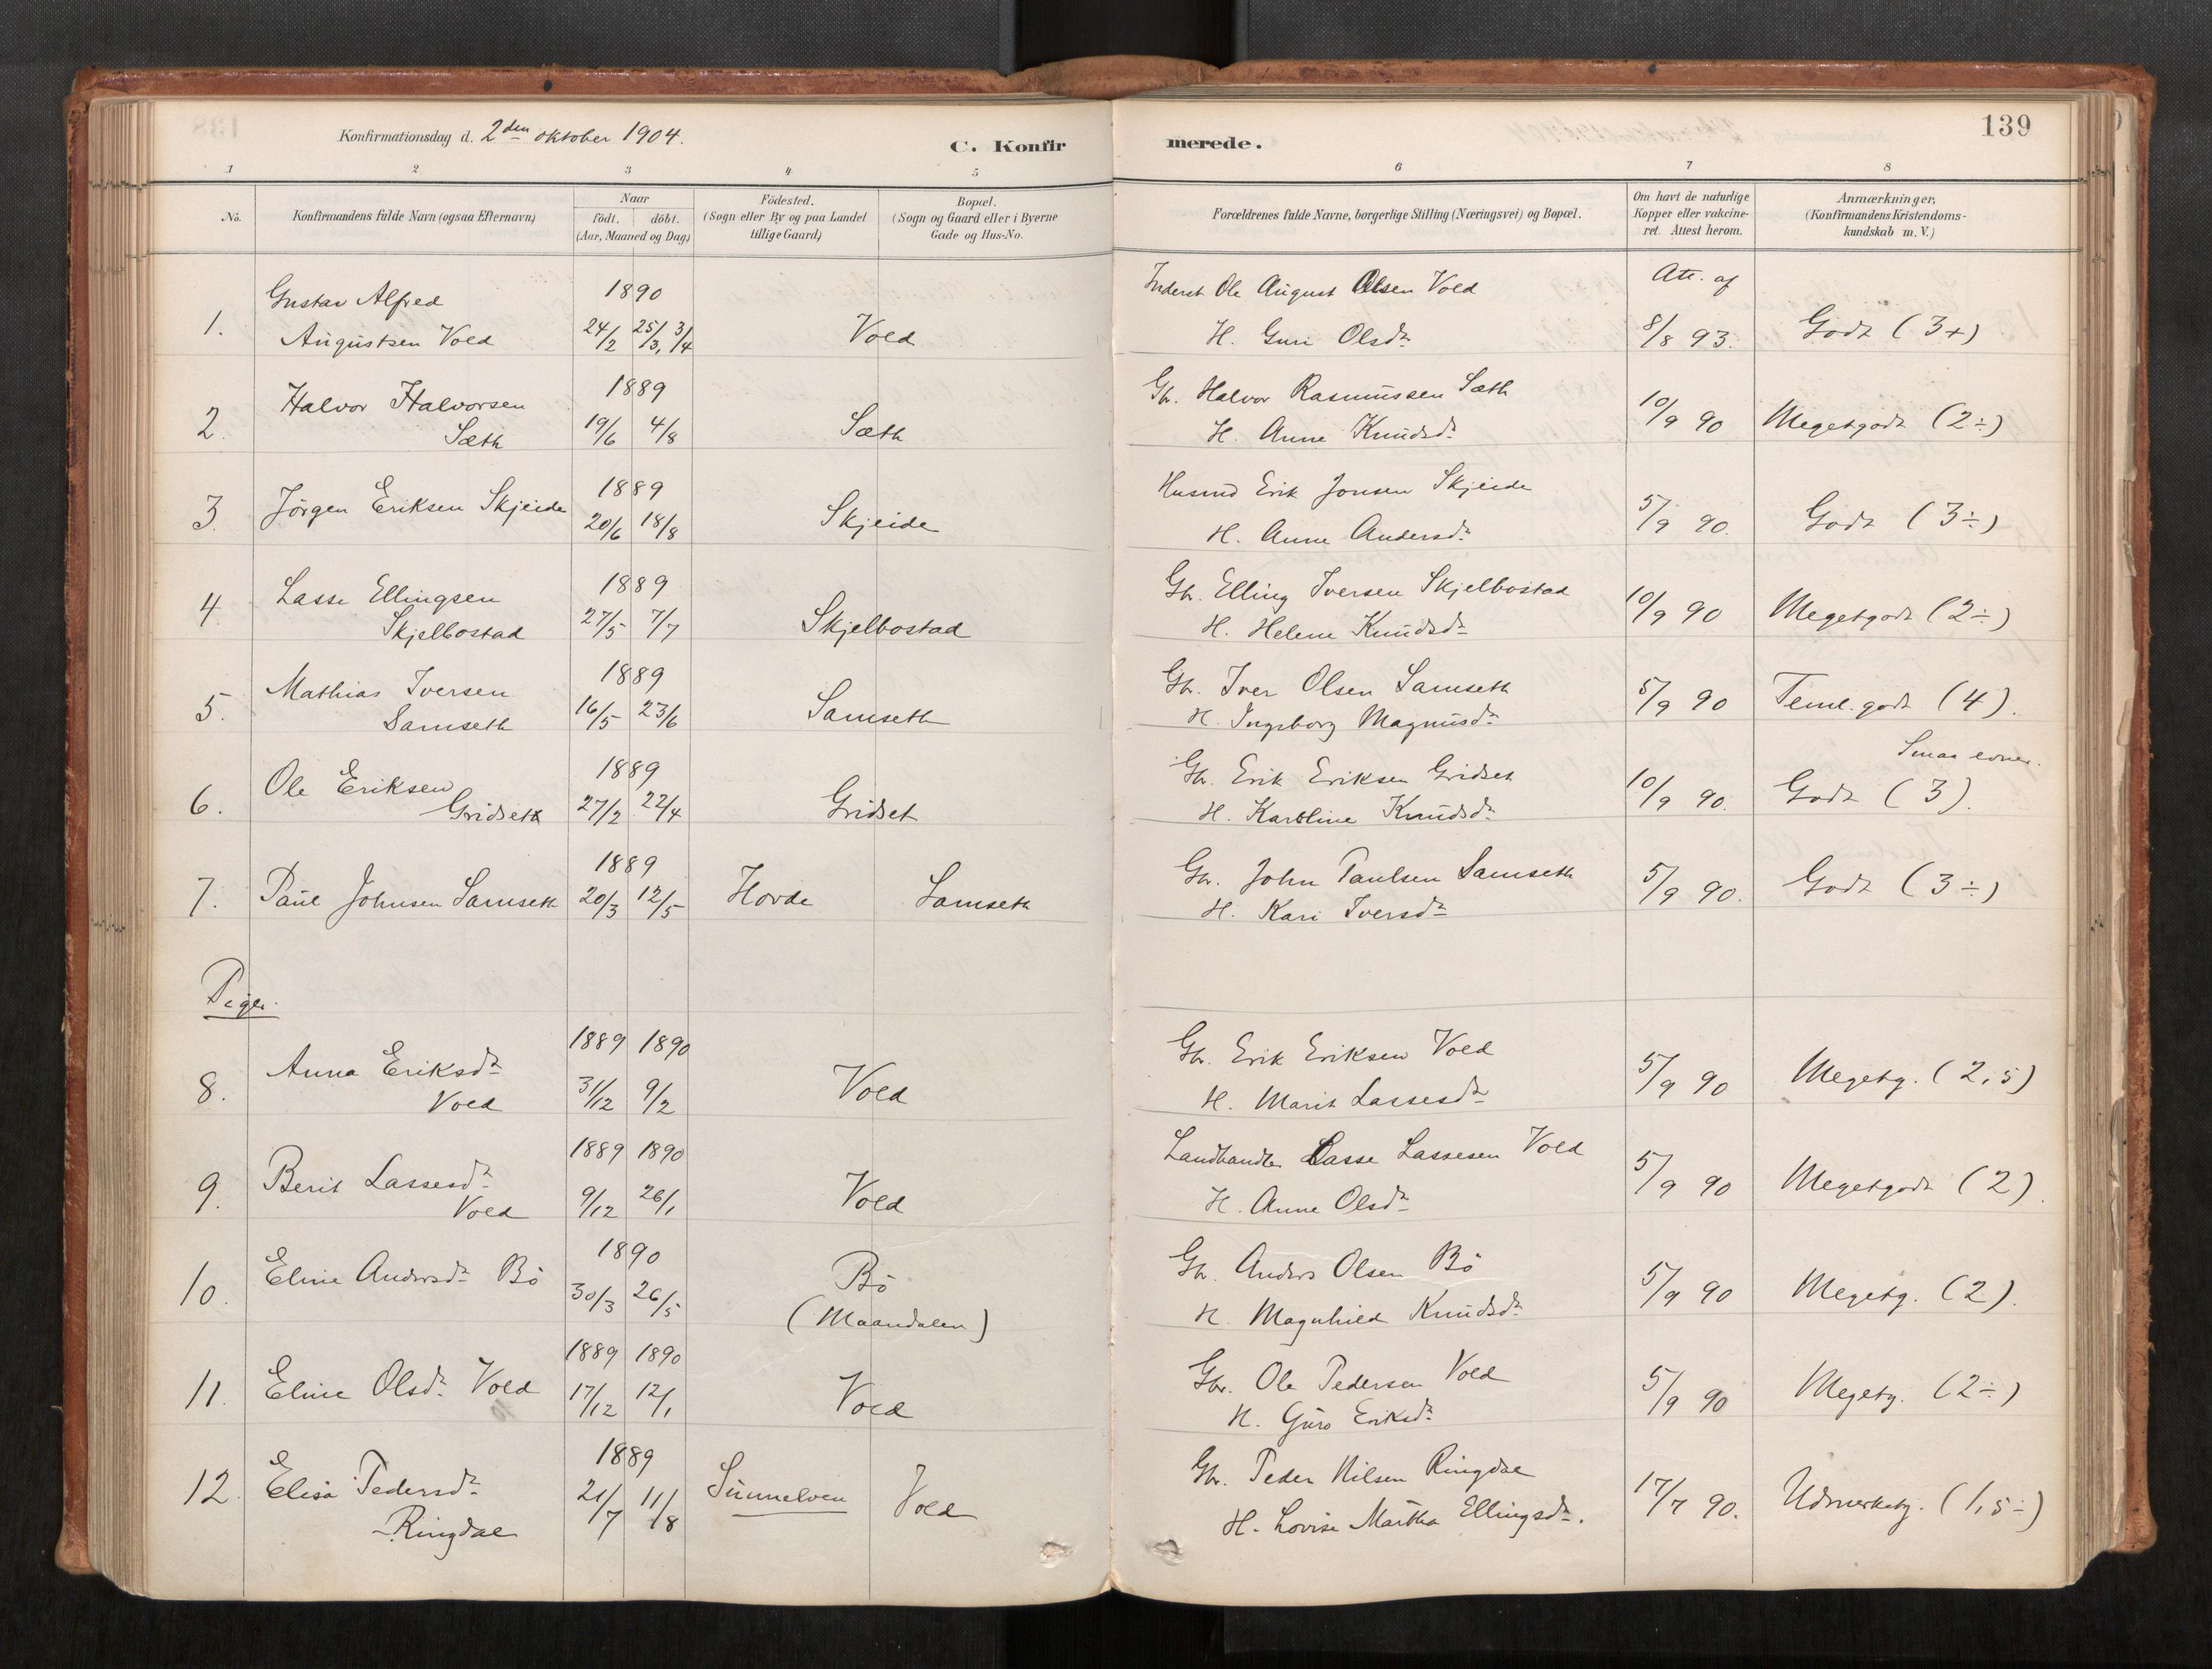 139
Konfirmationsdag d. 2den oktober 1904.
C. Konfirmerede.
1 2 3 4 5 6 7 8
No. Konfirmandens fulde Navn (ogsaa Efternavn) Naar födt. döbt. (Aar, Maaned og Dag.) Födested. (Sogn eller By og paa Landet tillige Gaard) Bopæl. (Sogn og Gaard eller i Byerne Gade og Hus-No. Forældrenes fulde Navne, borgerlige Stilling (Næringsvei) og Bopæl. Om havt de naturlige Kopper eller vakcineret. Attest herom. Anmærkninger, (Konfirmandens Kristendomskundskab m. V.)
Gustav Alfred 1890 Inderst Ole August Olsen Vold Att. af
1. Augustsen Vold 24/2 25/3, 3/4 Vold H. Guri Olsdr 8/8 93. Godt (3+)
Halvor Halvorsen 1889 Gbr. Halvor Rasmussen Sæth
2. Sæth 19/6 4/8 Sæth H. Anne Knudsdr 10/9 90 Megetgodt (2÷)
1889 Husmd Erik Jonsen Skjeide
3. Jörgen Eriksen Skjeide 20/6 18/8 Skjeide H. Anne Andersdr 5/9 90. Godt (3÷)
Lasse Ellingsen 1889 Gbr. Elling Iversen Skjelbostad
4. Skjelbostad 27/5 7/7 Skjelbostad H. Helene Knudsdr 10/9 90 Megetgodt (2÷)
Mathias Iversen 1889 Gbr. Iver Olsen Samseth
5. Samseth 16/5 23/6 Samseth H. Ingeborg Magnusdr 5/9 90 Teml. godt (4).
Smaa evner.
Ole Eriksen 1889 Gbr. Erik Eriksen Gridset
6. Gridseth 27/2 22/4 Gridset H. Karoline Knudsdr 10/9 90. Godt (3).
1889 Gbr. John Paulsen Samseth
7. Paul Johnsen Samseth 20/3 12/5 Hovde Samseth H. Kari Iversdr 5/9 90. Godt (3÷)
Piger.
Anna Eriksdr 1889 1890 Gbr. Erik Eriksen Vold
8. Vold 31/12 9/2 Vold H. Marit Lassesdr 5/9 90 Megetg. (2,5)
Berit Lassesdr 1889 1890 Landhandler Lasse Lassesen Vold
9. Vold 9/12 26/1 Vold H. Anne Olsdr 5/9 90 Megetgodt (2).
Eline Andersdr Bö 1890 Bö Gbr. Anders Olsen Bö
10. 30/3 26/5 (Maandalen) H. Magnhild Knudsdr 5/9 90 Megetg. (2).
1889 1890 Gbr. Ole Pedersen Vold
11. Eline Olsdr Vold 17/12 12/1 Vold H. Guro Eriksdr 5/9 90 Megetg. (2÷)
1889 Gbr. Peder Nilsen Ringdal
12. Elisa Pedersdr Ringdal 21/7 11/8 Sunnelven Vold H. Lovise Martha Ellingsdr. 17/7 90. Udmerketg. (1,5÷)